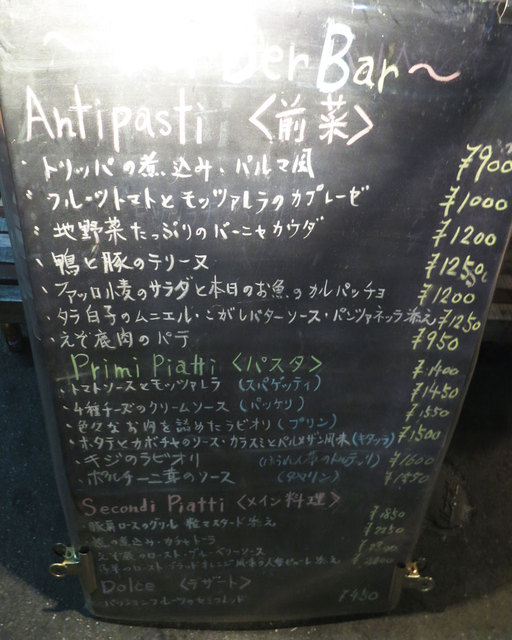 〜 Der Bar 〜
Antipasti 〈前菜〉
・トリッパの煮込み、パルマ風 ¥900
・フルーツトマトとモッツァレラのカプレーゼ ¥1000
・地野菜たっぷりのバーニャカウダ ¥1200
・鴨と豚のテリーヌ ¥1250
・ファッロ小麦のサラダと本日のお魚のカルパッチョ ¥1200
・タラ白子のムニエル・こがしバターソース・パンツァネッラ添え ¥1250
・えぞ鹿肉のパテ ¥950
Primi Piatti 〈パスタ〉
・トマトソースとモッツァレラ (スパゲッティ) ¥1400
・4種チーズのクリームソース (パッケリ) ¥1450
・色々なお肉を詰めたラビオリ (プリン) ¥1550
・ホタテとカボチャのソース・カラスミとパルメザン風味 (キタッラ) ¥1500
・キジのラビオリ ¥1600
・ポルチーニ茸のソース
Secondi Piatti 〈メイン料理〉
・豚肩ロースのグリル 粒マスタード添え ¥1850
の煮込み・カチャトーラ
のロースト・ブルーベリーソース
Dolce 〈デザート〉
・パッションフルーツのセミフレッド ¥450